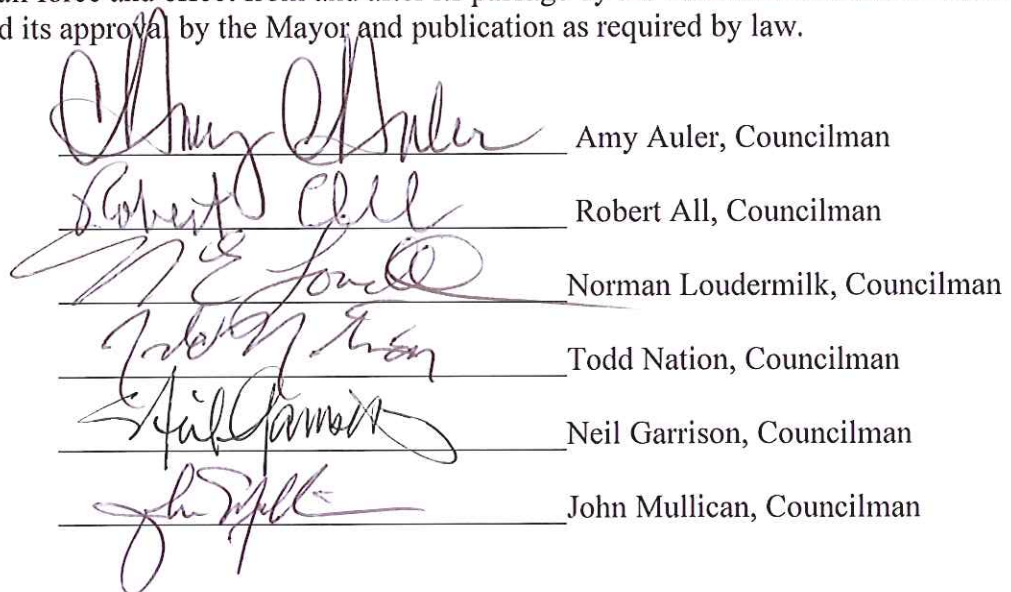 d its approval by the Mayor and publication as required by law.
Amy Auler Amy Auler, Councilman
Robert All Robert All, Councilman
N E Loud Norman Loudermilk, Councilman
Todd Nation Todd Nation, Councilman
Neil Garrison Neil Garrison, Councilman
John Mullican, Councilman